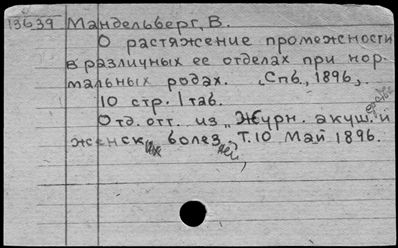 13639 Мандельберг, В.
О растяжение промежности
в различных ее отделах при нор-
мальных родах. „Спб., 1896„.
10 стр. 1 таб.
Отд. отт. из „Журн. акуш. и
женских болезней„ Т.10 Май 1896.